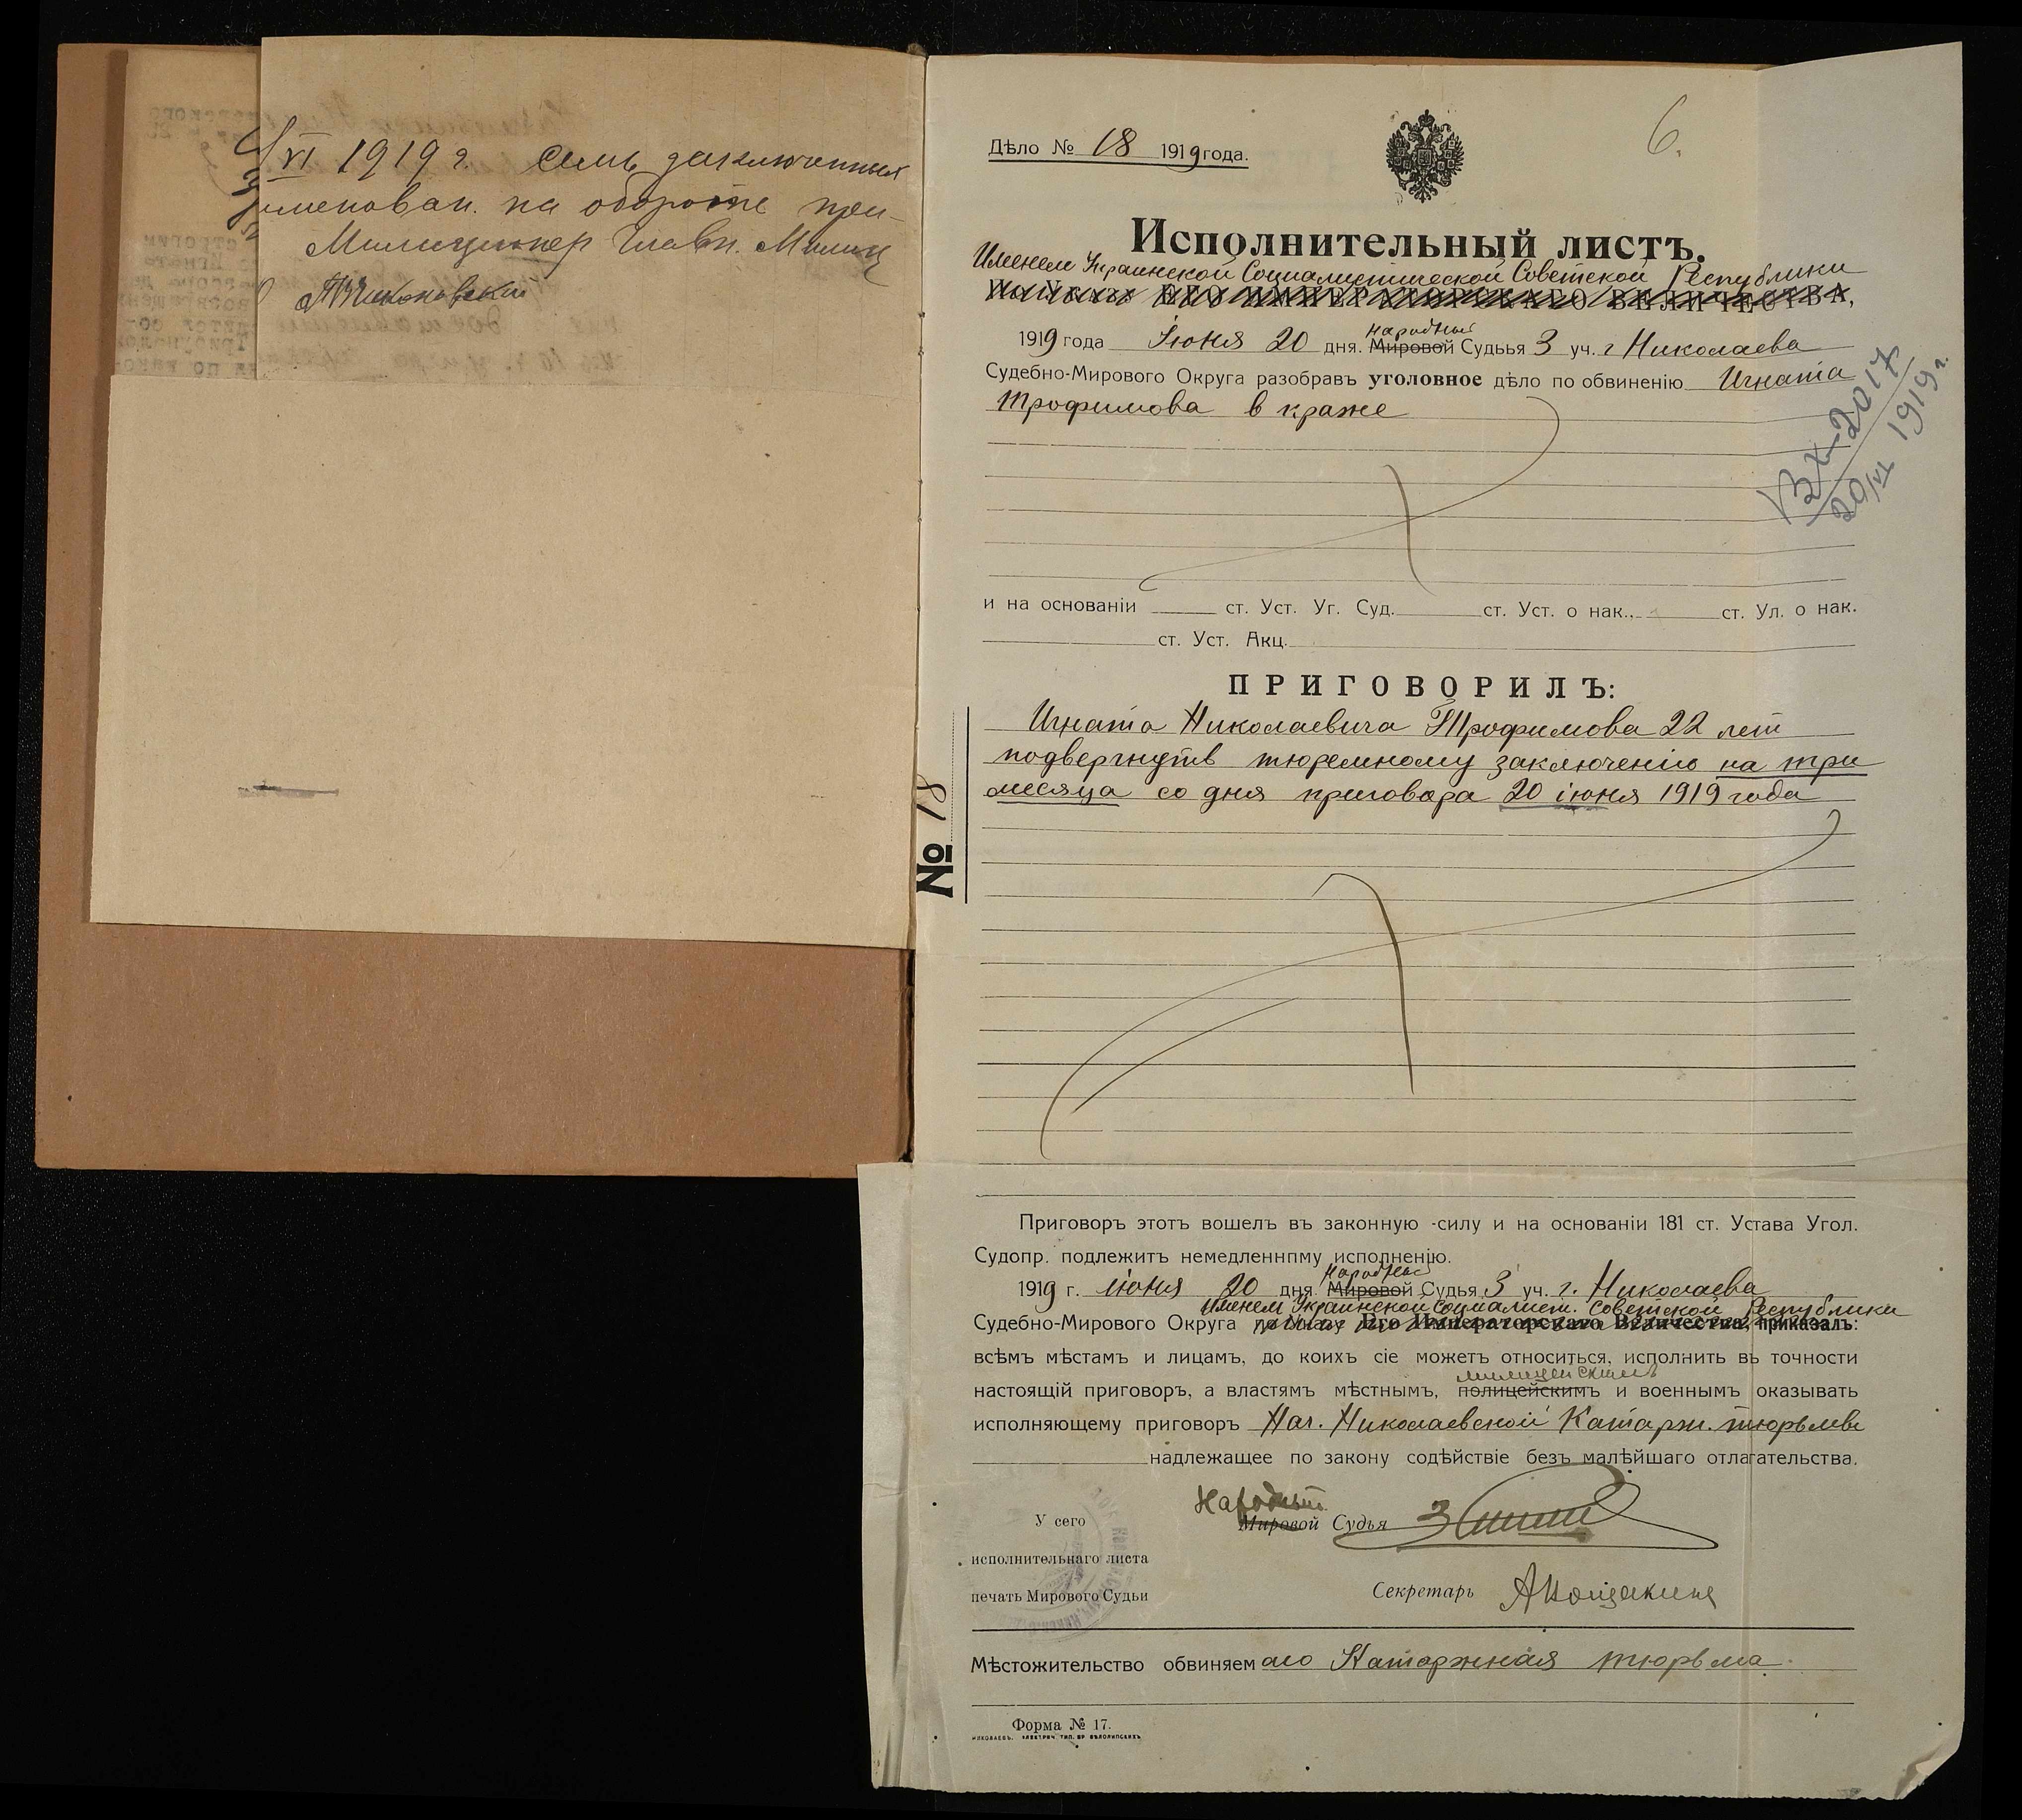 VI 1919 г. семь заключенных
именован. на обороте при-
Милиционер Главн. Милиц
6.
Дѣло № 18 1919 года.
Исполнительный листъ.
Именем Украинской Социалистической Советской Республики
По указу ЕГО ИМПЕРАТОРСКАГО ВЕЛИЧЕСТВА,
народный
1919 года Июня 20 дня. Мировой Судьья 3 уч. г Николаева
Судебно-Мирового Округа разобравъ уголовное дѣло по обвиненію Игната
Трофимова в краже
Вх-2017
20/VI 1919 г.
и на основаніи ст. Уст. Уг. Суд. ст. Уст. о нак. ст. Ул. о нак.
ст. Уст. Акц.
ПРИГОВОРИЛЪ:
Игната Николаевича Трофимова 22 лет
подвергнуть тюремному заключенію на три
месяца со дня приговора 20 іюня 1919 года
№ 18
Приговоръ этотъ вошелъ въ законную -силу и на основаніи 181 ст. Устава Угол.
Судопр. подлежитъ немедленнпму исполненію.
Народный
1919 г. июня 20 дня Мировой Судья 3 уч. г. Николаева
Именем Украинской Социалист. Советской Республики
Судебно-Мирового Округа по указу Его Императорскаго Величества, приказалъ:
всѣмъ мѣстамъ и лицамъ, до коихъ сіе можетъ относиться, исполнить въ точности
милицейским
настоящій приговоръ, а властямъ мѣстнымъ, полицейскимъ и военнымъ оказывать
исполняющему приговоръ Нач. Николаевской Катарж. тюрьмы
надлежащее по закону содѣйствіе безъ малѣйшаго отлагательства.
Народный
У сего Мировой Судья
исполнительнаго листа
печать Мирового Судьи Секретарь
Мѣстожительство обвиняемаго Катаржная тюрьма.
Форма № 17.
НИКОЛАЕВЪ. ЭЛЕКТРИЧ ТИП. БР БѢЛОЛИПСКИХЪ